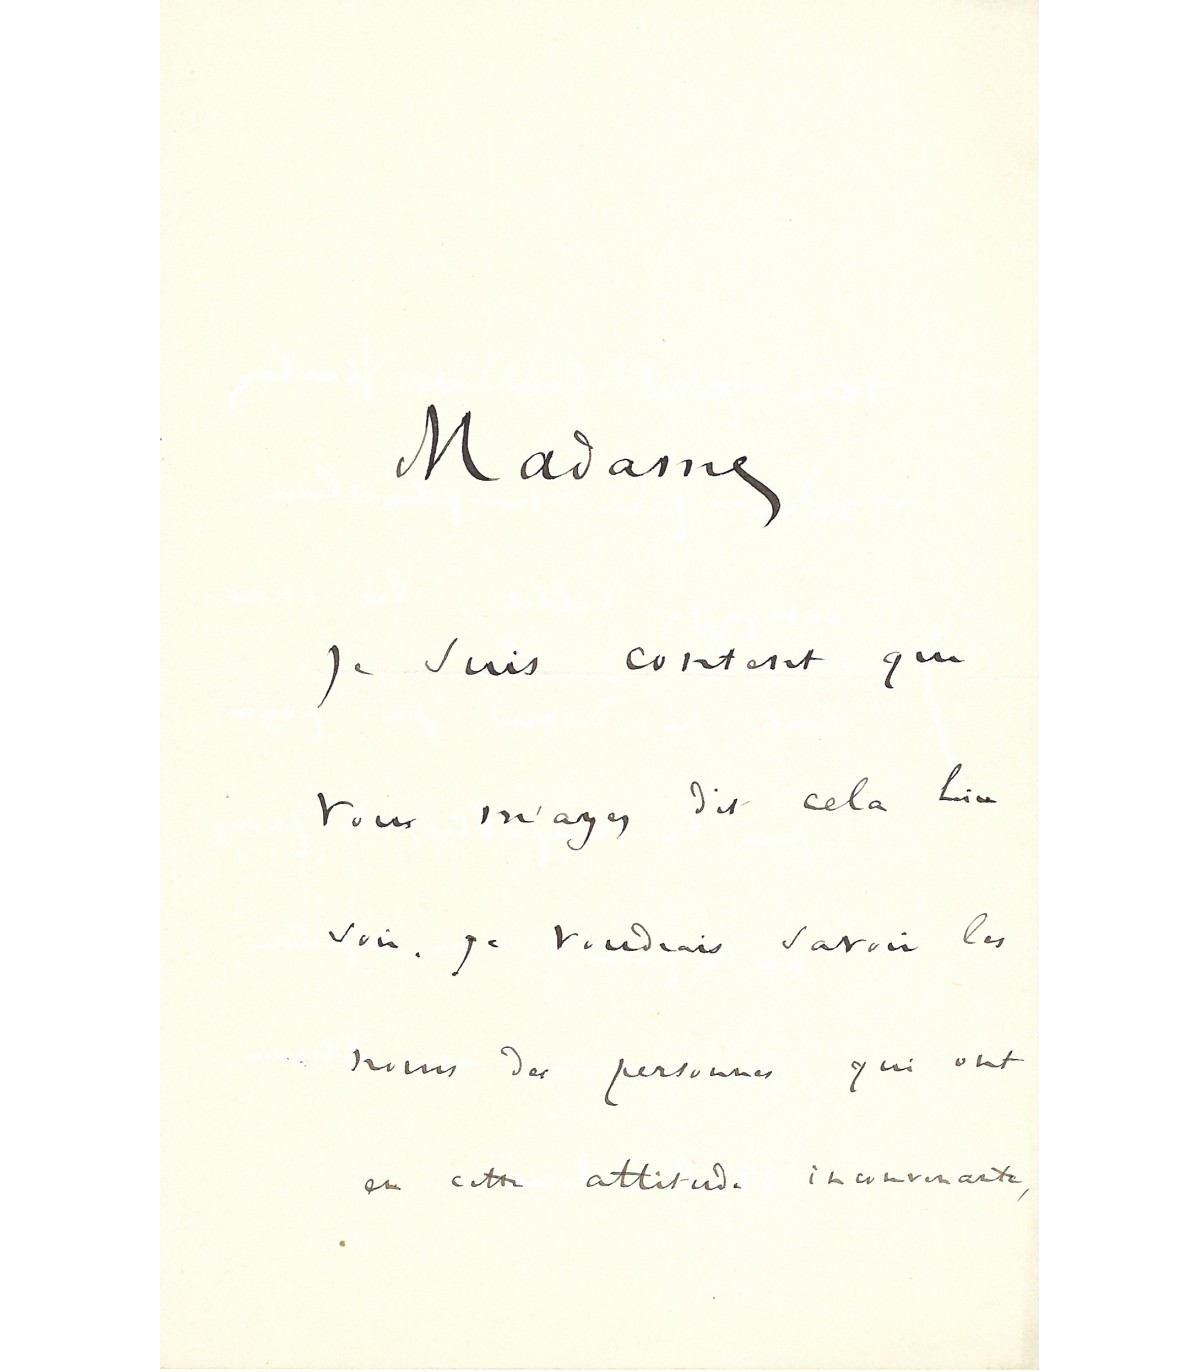 Madame
Je suis content que
vous m'ayez dit cela hier
soir. Je voudrais savoir les
noms des personnes qui ont
eu cette attitude inconvenante,